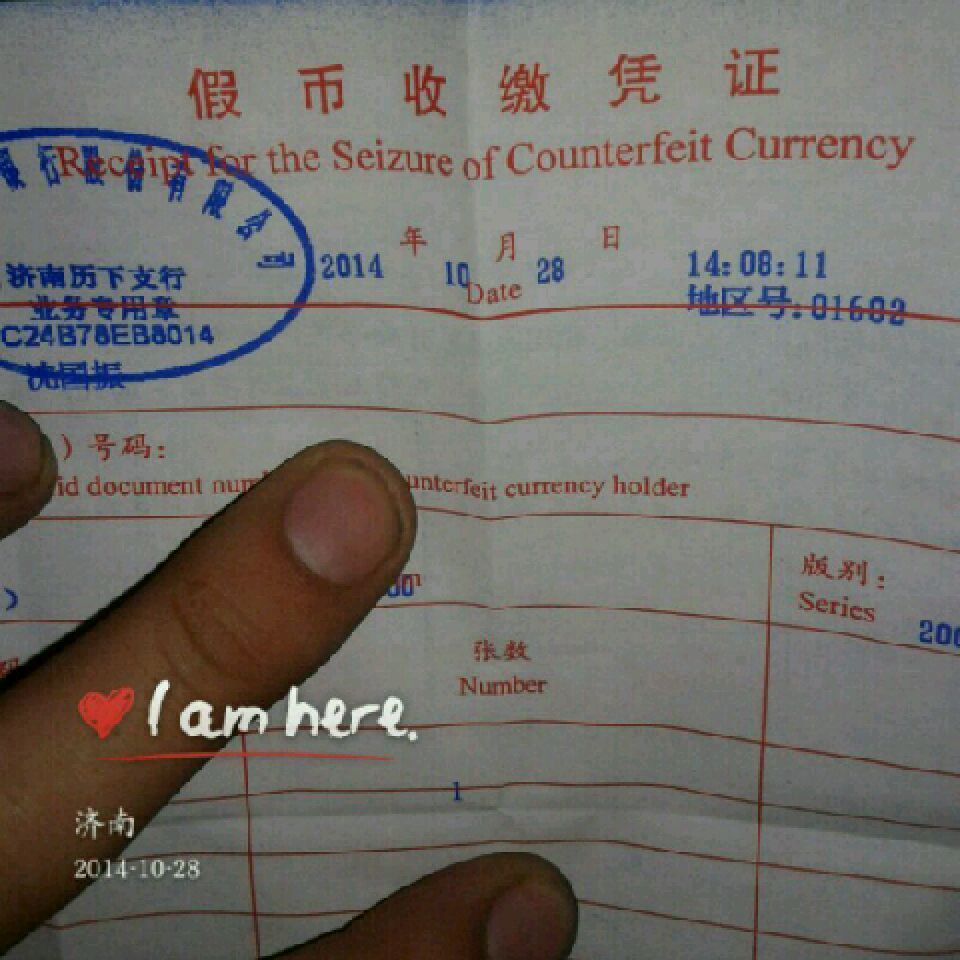 假币收缴凭证
Receipt for the Seizure of Counterfeit Currency
银行股份有限公司
2014 年 10 月 28 日 14:08:11
Date
地区号:01602
济南历下支行
业务专用章
C24B78EB8014
沈国振
）号码：
id document
counterfeit currency holder
版别：
Series
200
张数
Number
1
I am here.
济南
2014-10-28